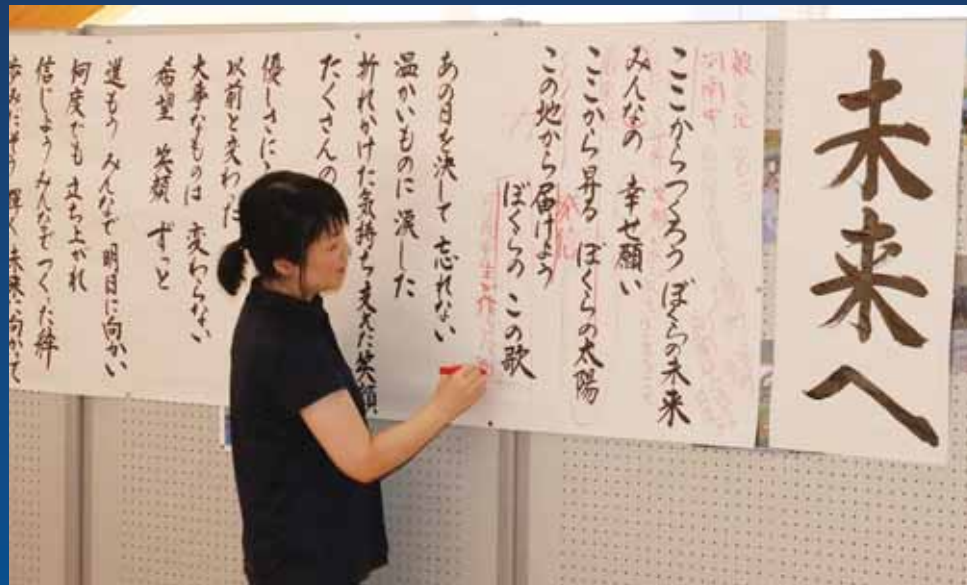 未来へ
ここからつくろう ぼくらの未来
みんなの 幸せ願い
ここから昇る ぼくらの太陽
この地から届けよう
ぼくらの この歌
あの日を決して 忘れない
温かいものに 涙した
折れかけた気持ち支えた笑顔
たくさんの
優しさに
以前と変わった
大事なものは 変わらない
希望 笑顔 ずっと
進もう みんなで 明日に向かい
何度でも 立ち上がれ
信じよう みんなでつくった絆
歩みだそう 輝く未来に向かって